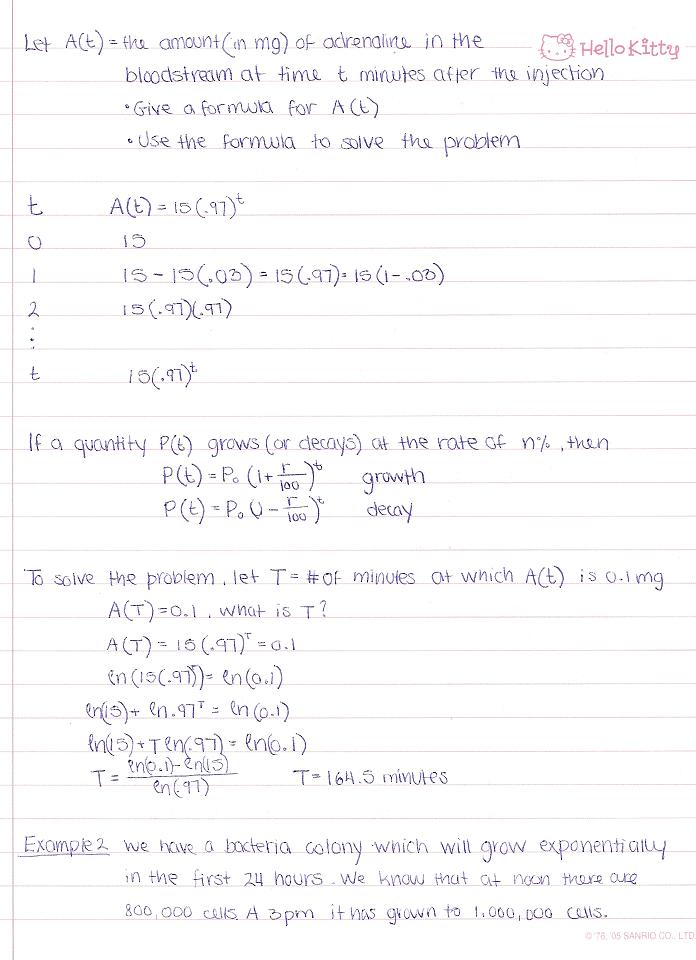 Let A(t) = the amount (in mg) of adrenaline in the
Hello Kitty
bloodstream at time t minutes after the injection
• Give a formula for A(t)
• Use the formula to solve the problem
t A(t) = 15(.97)^t
0 15
1 15 - 15(.03) = 15(.97) = 15(1-.03)
2 15(.97)(.97)
⋮
t 15(.97)^t
If a quantity P(t) grows (or decays) at the rate of n%, then
P(t) = P₀ (1 + r/100)^t growth
P(t) = P₀ (1 - r/100)^t decay
To solve the problem, let T = # of minutes at which A(t) is 0.1 mg
A(T) = 0.1, what is T?
A(T) = 15(.97)^T = 0.1
ln(15(.97)^T) = ln(0.1)
ln(15) + ln .97^T = ln(0.1)
ln(15) + T ln(.97) = ln(0.1)
T = (ln(0.1) - ln(15))/ln(.97) T = 164.5 minutes
Example 2 We have a bacteria colony which will grow exponentially
in the first 24 hours. We know that at noon there are
800,000 cells. A 3pm it has grown to 1,000,000 cells.
© '76, '05 SANRIO CO., LTD.